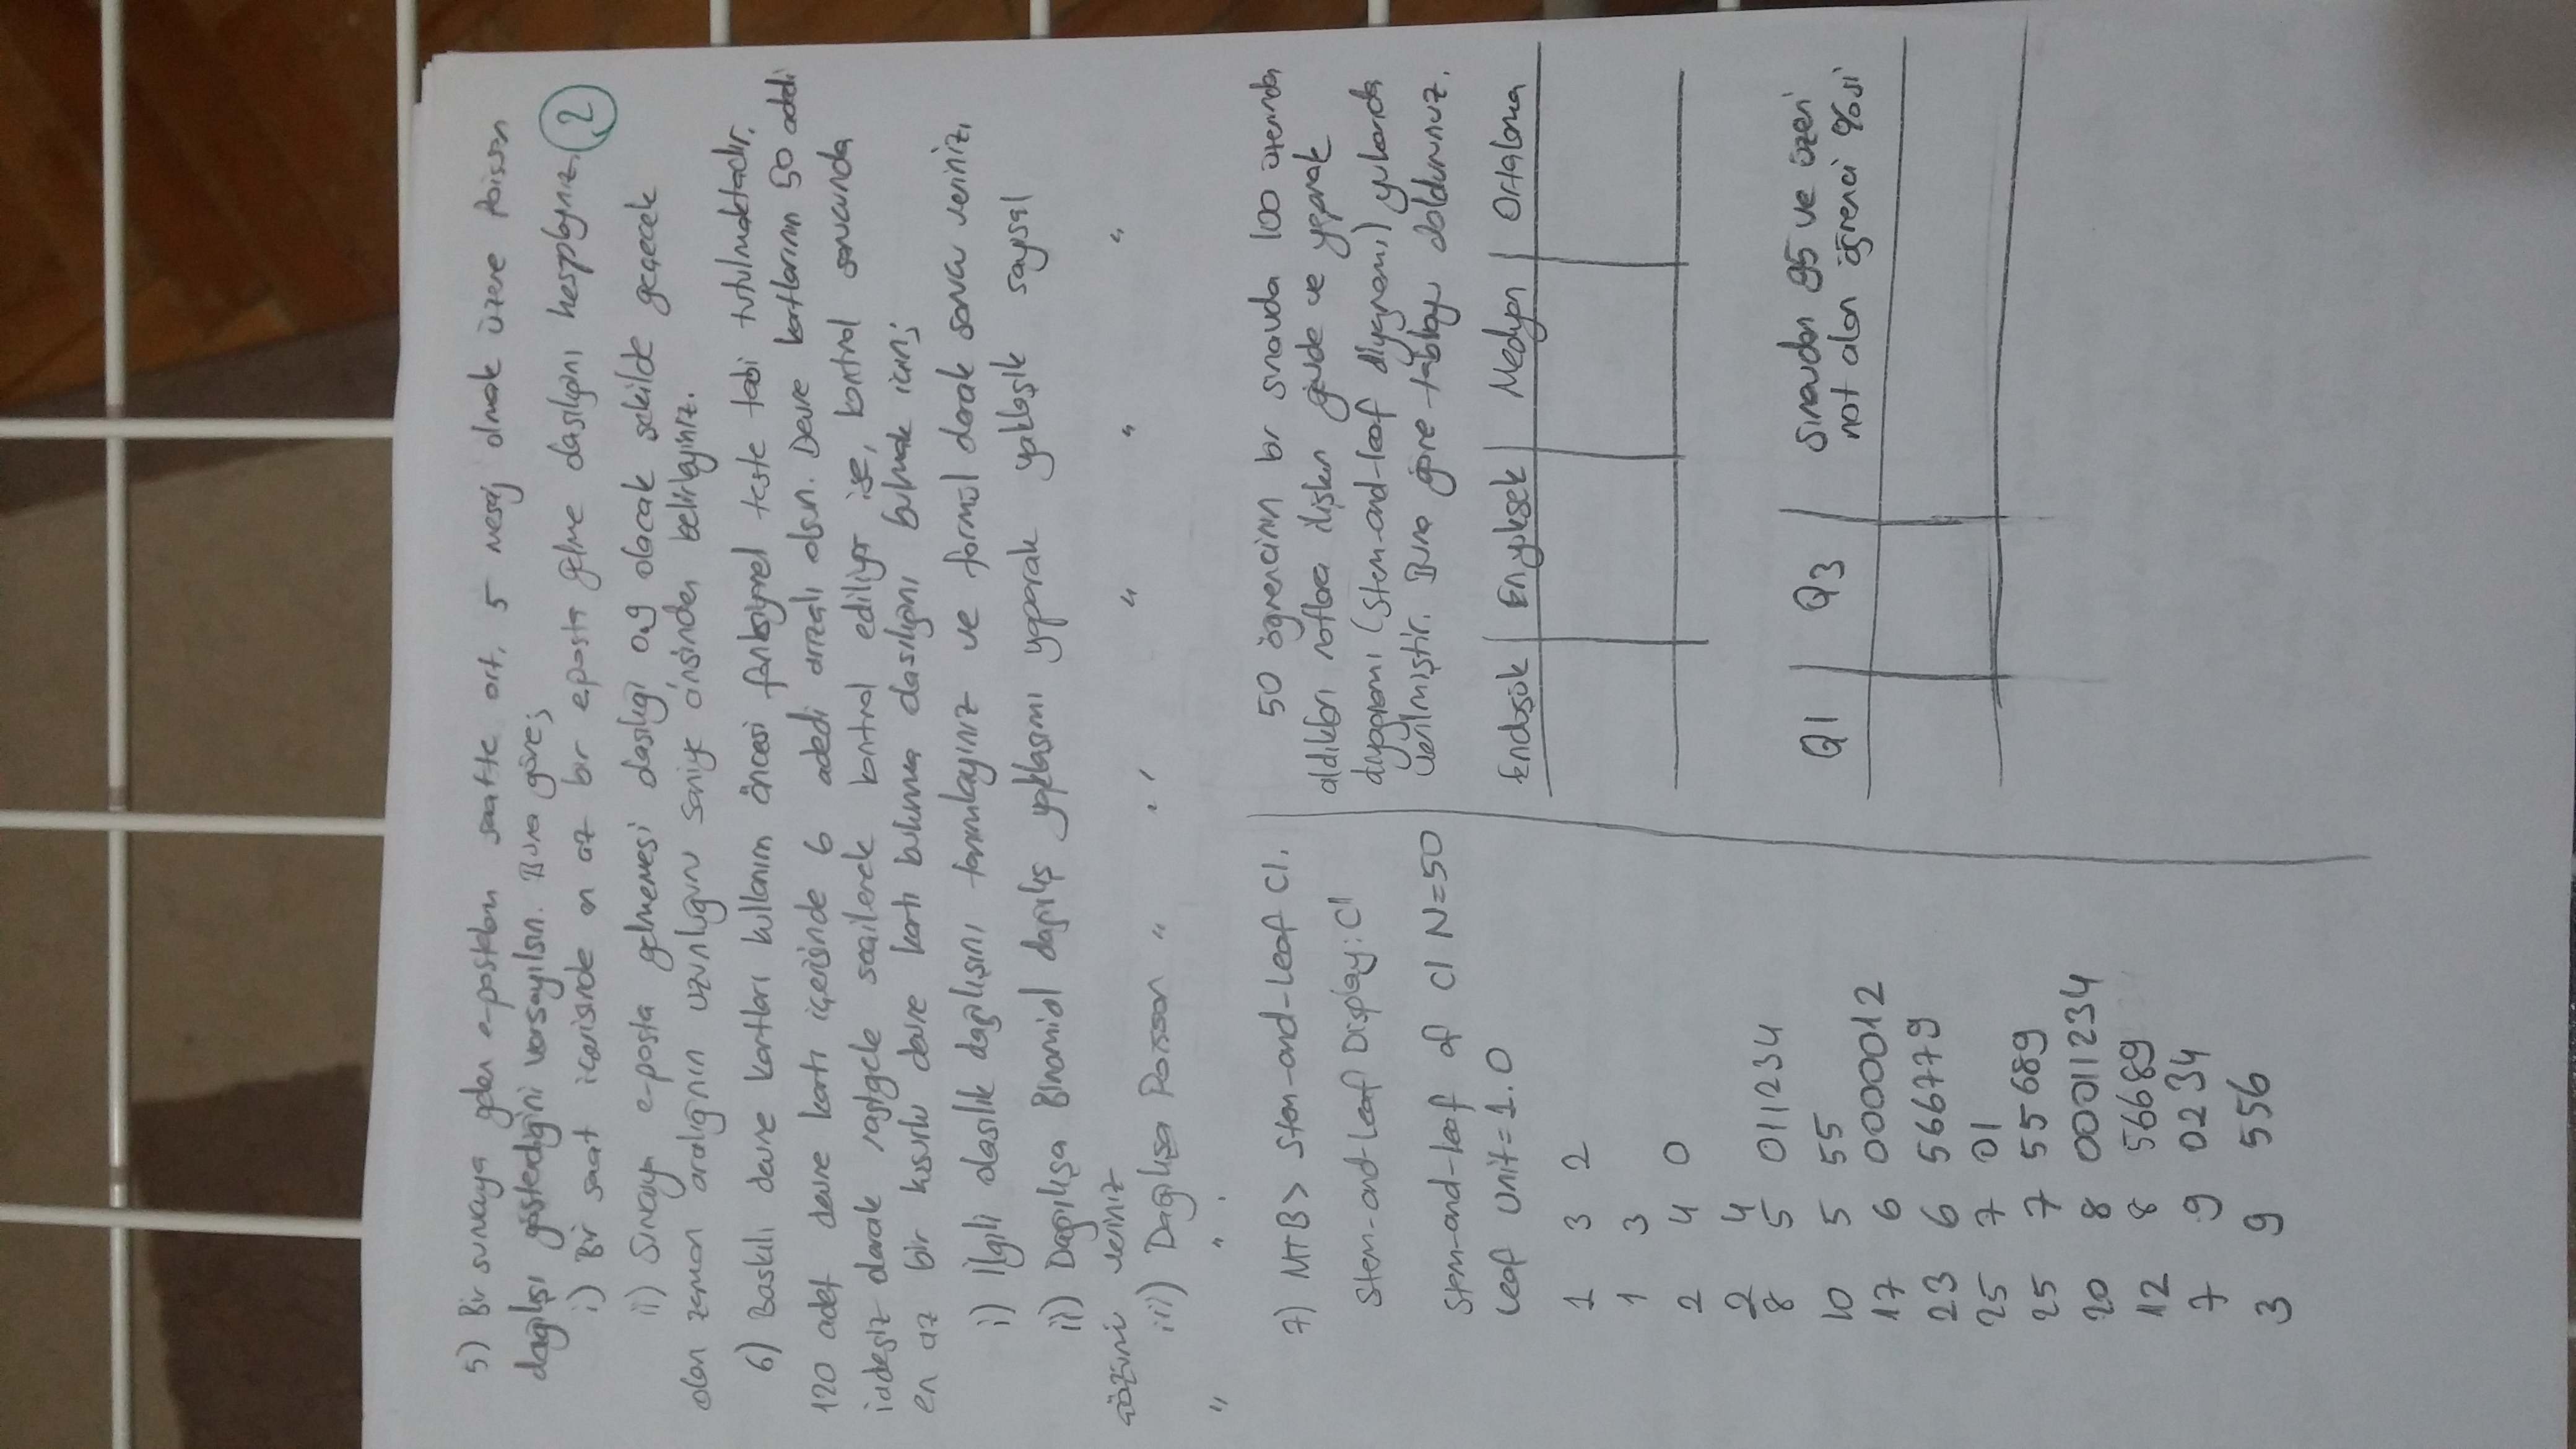 5) Bir sunucuya gelen e-postaların saatte ort. 5 mesaj olmak üzere Poisson
dağılışı gösterdiğini varsayılsın. Buna göre;
i) Bir saat içerisinde en az bir eposta gelme olasılığını hesaplayınız.
2
ii) Sunucuya e-posta gelmemesi olasılığı 0.9 olacak şekilde geçecek
olan zaman aralığının uzunluğunu saniye cinsinden belirleyiniz.
6) Baskılı devre kartları kullanım öncesi fonksiyonel teste tabi tutulmaktadır.
120 adet devre kartı içerisinde 6 adedi arızalı olsun. Devre kartlarının 50 adedi
iadesiz olarak rastgele seçilerek kontrol ediliyor ise, kontrol sonucunda
en az bir kusurlu devre kartı bulunma olasılığını bulmak için;
i) İlgili olasılık dağılışını tanımlayınız ve formül olarak sonucu veriniz.
ii) Dağılışa Binomial dağılış yaklaşımı yaparak yaklaşık sayısal
çözümü veriniz
iii) Dağılışa Poisson " " " " "
" " .
7) MTB> Stem-and-Leaf C1.
Stem-and-Leaf Display: C1
Stem-and-leaf of C1 N=50
Leaf Unit=1.0
1 3 2
1 3
2 4 0
2 4
8 5 011234
10 5 55
17 6 0000012
23 6 566779
25 7 01
25 7 55689
20 8 00011234
12 8 56689
7 9 0234
3 9 556
50 öğrencinin bir sınavda 100 üzerinden
aldıkları notlara ilişkin gövde ve yaprak
diyagramı (Stem-and-leaf diyagramı) yukarıda
verilmiştir. Buna göre tabloyu doldurunuz.
En düşük En yüksek Medyan Ortalama
Q1 Q3 Sınavdan 95 ve üzeri
not alan öğrenci %si